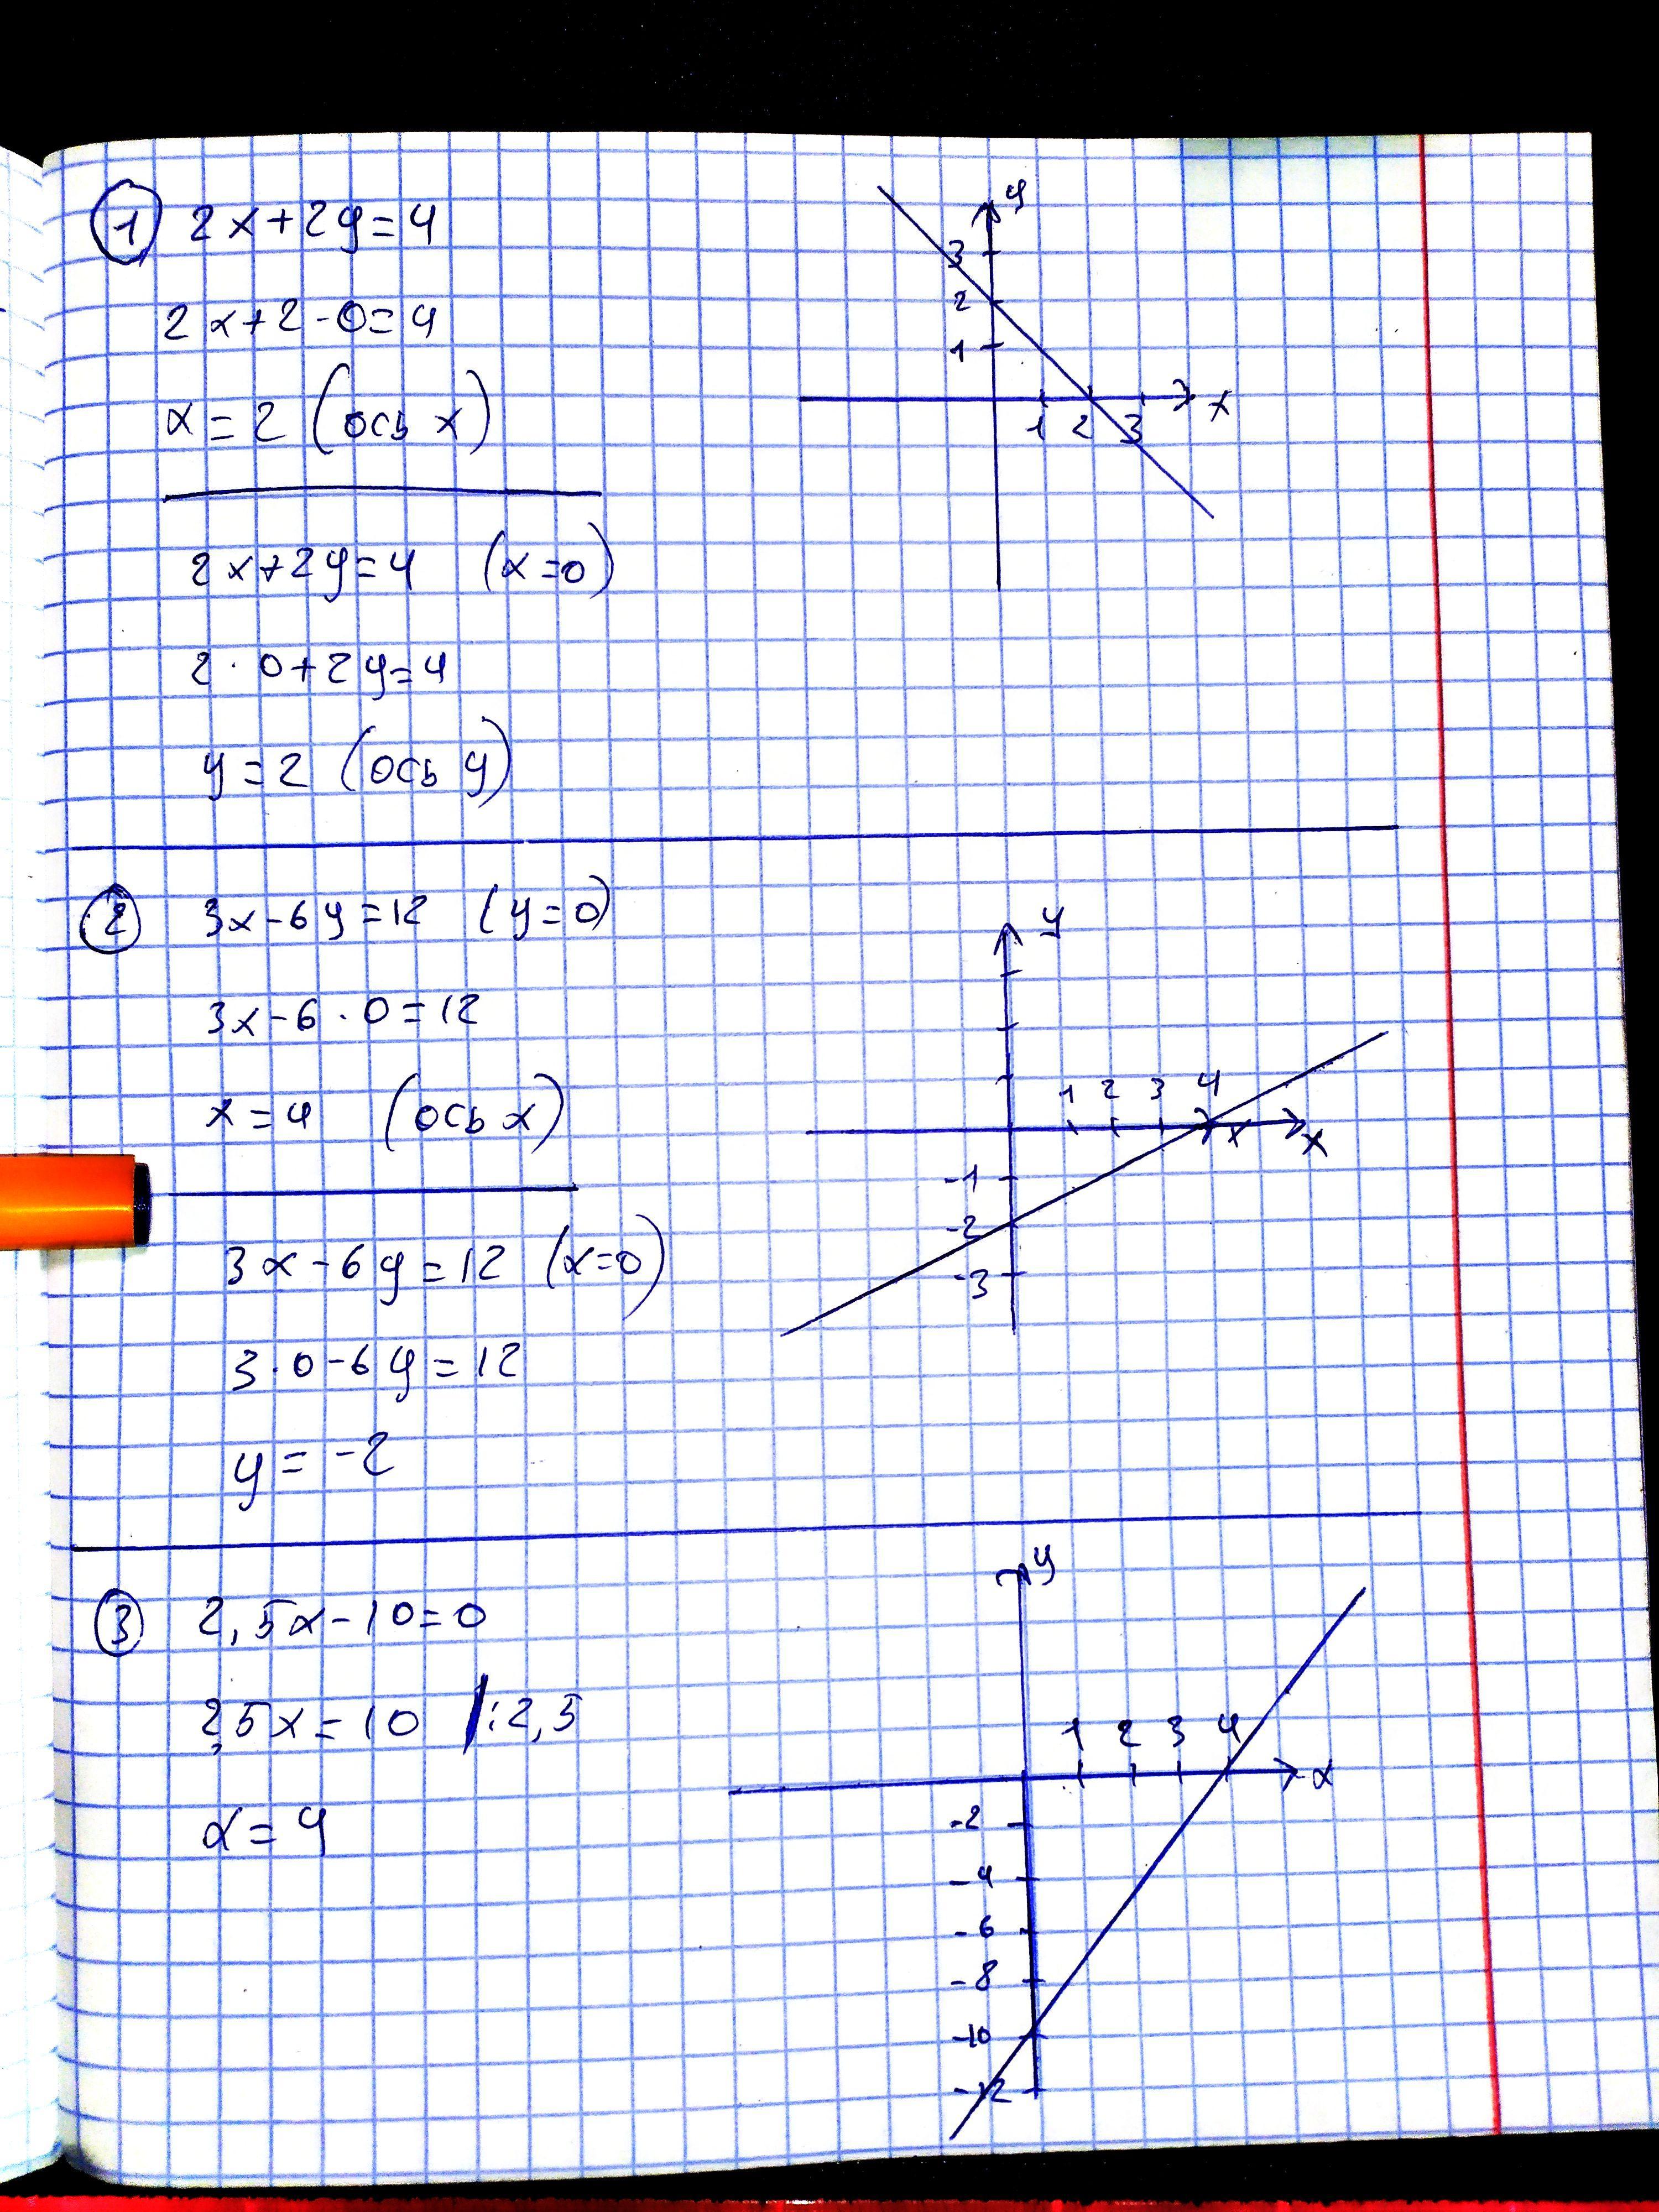 1 2x+2y=4
2x+2·0=4
x=2 (ось x)
2x+2y=4 (x=0)
2·0+2y=4
y=2 (ось y)
y
3
2
1
1 2 3
x
2 3x-6y=12 (y=0)
3x-6·0=12
x=4 (ось x)
3x-6y=12 (x=0)
3·0-6y=12
y=-2
y
1 2 3 4
x x
-1
-2
-3
3 2,5x-10=0
2,5x=10 |:2,5
x=4
y
1 2 3 4
x
-2
-4
-6
-8
-10
-12